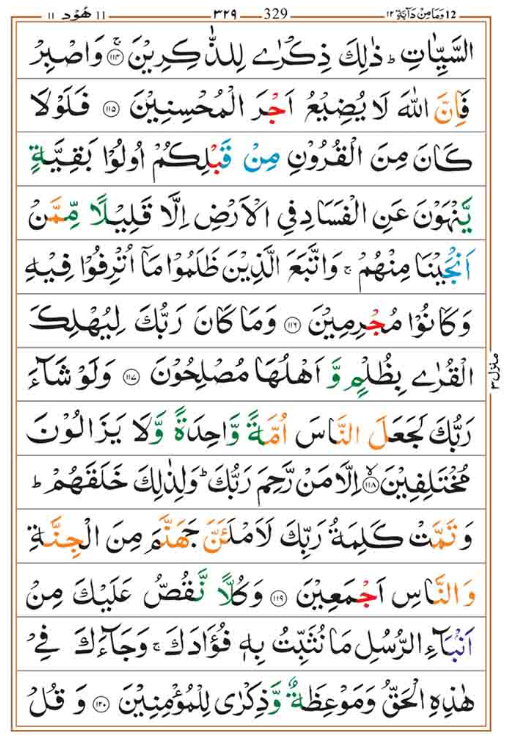 ۱۱ هُوۡد ۱۱ ۳۲۹ 329 وَمَا مِنۡ دَآبَّةٍ ۱۲ 12
السَّيِّاٰتِ ؕ ذٰلِكَ ذِكۡرٰى لِلذّٰكِرِيۡنَ ۚ‏ ﴿۱۱۴﴾ وَاصۡبِرۡ
فَاِنَّ اللّٰهَ لَا يُضِيۡعُ اَجۡرَ الۡمُحۡسِنِيۡنَ ﴿۱۱۵﴾ فَلَوۡ لَا
كَانَ مِنَ الۡقُرُوۡنِ مِنۡ قَبۡلِكُمۡ اُولُوۡا بَقِيَّةٍ
يَّنۡهَوۡنَ عَنِ الۡفَسَادِ فِى الۡاَرۡضِ اِلَّا قَلِيۡلًا مِّمَّنۡ
اَنۡجَيۡنَا مِنۡهُمۡ ۚ وَاتَّبَعَ الَّذِيۡنَ ظَلَمُوۡا مَاۤ اُتۡرِفُوۡا فِيۡهِ
وَكَانُوۡا مُجۡرِمِيۡنَ ﴿۱۱۶﴾ وَمَا كَانَ رَبُّكَ لِيُهۡلِكَ
الۡقُرٰى بِظُلۡمٍ وَّاَهۡلُهَا مُصۡلِحُوۡنَ ﴿۱۱۷﴾ وَلَوۡ شَآءَ
رَبُّكَ لَجَعَلَ النَّاسَ اُمَّةً وَّاحِدَةً وَّلَا يَزَالُوۡنَ
مُخۡتَلِفِيۡنَۙ ﴿۱۱۸﴾ اِلَّا مَنۡ رَّحِمَ رَبُّكَ ؕ وَلِذٰلِكَ خَلَقَهُمۡ ؕ
وَتَمَّتۡ كَلِمَةُ رَبِّكَ لَاَمۡلَـئَنَّ جَهَنَّمَ مِنَ الۡجِنَّةِ
وَالنَّاسِ اَجۡمَعِيۡنَ ﴿۱۱۹﴾ وَكُلًّا نَّقُصُّ عَلَيۡكَ مِنۡ
اَنۡۢبَآءِ الرُّسُلِ مَا نُثَبِّتُ بِهٖ فُؤَادَكَ ۚ وَجَآءَكَ فِىۡ
هٰذِهِ الۡحَـقُّ وَمَوۡعِظَةٌ وَّذِكۡرٰى لِلۡمُؤۡمِنِيۡنَ ﴿۱۲۰﴾ وَقُلْ
منزل ۳